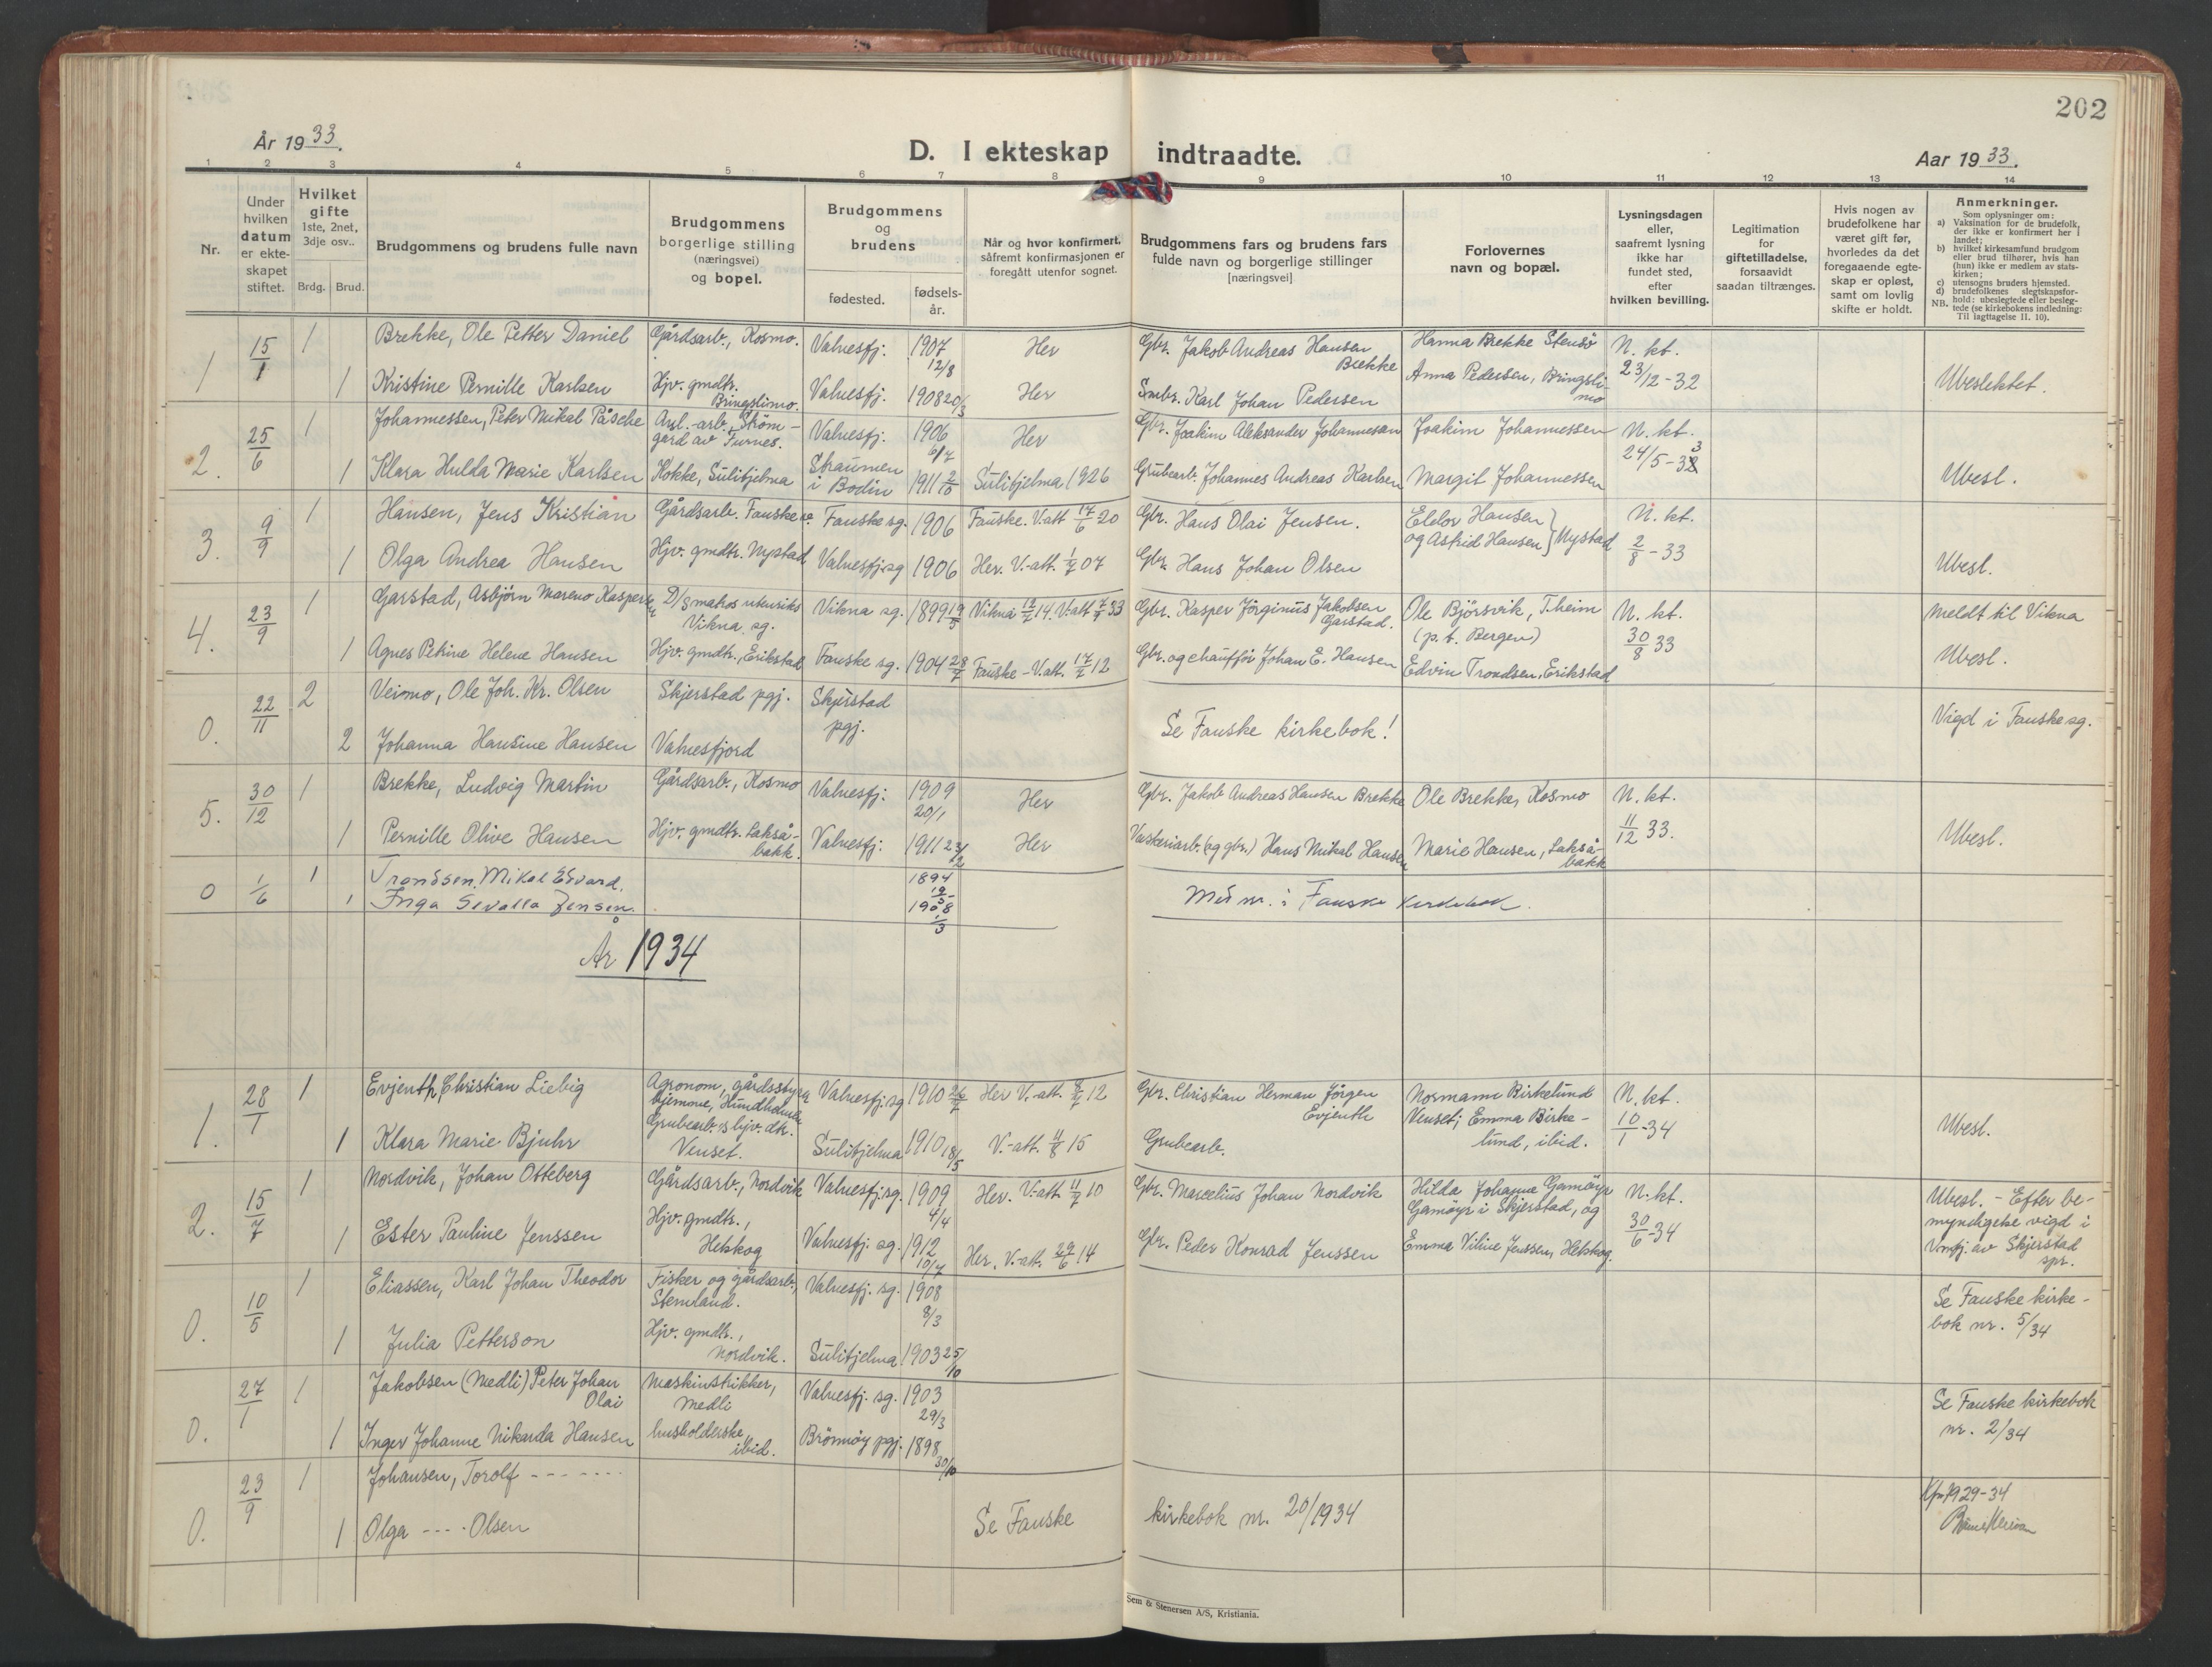 202
År 1933.
D. I ekteskap indtraadte.
Aar 1933.
1 2 3 4 5 6 7 8 9 10 11 12 13 14
Nr.
Under
hvilken
datum
er ekte-
skapet
stiftet.
Hvilket
gifte
1ste, 2net,
3dje osv..
Brdg. Brud.
Brudgommens og brudens fulle navn
Brudgommens
borgerlige stilling
(næringsvei)
og bopel.
Brudgommens
og
brudens
fødested.
fødsels-
år.
Når og hvor konfirmert,
såfremt konfirmasjonen er
foregått utenfor sognet.
Brudgommens fars og brudens fars
fulde navn og borgerlige stillinger
[næringsvei]
Forlovernes
navn og bopæl.
Lysningsdagen
eller,
saafremt lysning
ikke har
fundet sted,
efter
hvilken bevilling.
Legitimation
for
giftetilladelse,
forsaavidt
saadan tiltrænges.
Hvis nogen av
brudefolkene har
været gift før,
hvorledes da det
foregaaende egte-
skap er opløst,
samt om lovlig
skifte er holdt.
Anmerkninger.
Som oplysninger om:
a) Vaksination for de brudefolk,
der ikke er konfirmert her i
landet;
b) hvilket kirkesamfund brudgom
eller brud tilhører, hvis han
(hun) ikke er medlem av stats-
kirken;
c) utensogns bruders hjemsted.
d) brudefolkenes slegtskapsfor-
NB. hold: ubeslegtede eller besleg-
tede (se kirkebokens indledning:
Til Iagttagelse II. 10).
1 15/1 1 Brekke, Ole Petter Daniel Gårdsarb., Kosmo. Valnesfj. 1907 12/8 Her Gbr. Jakob Andreas Hansen Brekke Hanna Brekke Stensö N. kt. 23/12-32
1 Kristine Pernille Karlsen Hjv. gmdtr. Bringslimo. Valnesfj. 1908 20/3 Her Smbr. Karl Johan Pedersen Anna Pedersen, Bringslimo Ubeslektet.
2. 25/6 1 Johannessen, Peter Mikal Påsche Anl.-arb. Ström-
gård av Furnes. Valnesfj. 1906 6/7 Her Gbr. Joakim Aleksander Johannessen Joakim Johannessen N. kt. 24/5-33
1 Klara Hulda Marie Karlsen Kokke, Sulitjelma Straumen
i Bodin 1911 2/10 Sulitjelma 1926 Grubearb. Johannes Andreas Karlsen Margit Johannessen Ubesl.
3. 9/9 1 Hansen, Jens Kristian Gårdsarb. Fauske Fauske sg. 1906 Fauske. V.att 17/6 20 Gbr. Hans Olai Jensen. Eldor Hansen N. kt.
1 Olga Andrea Hansen Hjv. gmdtr. Nystad Valnesfj.sg 1906 Her. V.-att. 1/7 07 Gbr. Hans Johan Olsen og Astrid Hansen Nystad 2/8-33 Ubesl.
4. 23/9 1 Garstad, Asbjörn Mareno Kaspersen D/S matros utenriks
Vikna sg. Vikna sg. 1899 19/5 Vikna 12/7 14. V.att 7/7 33 Gbr. Kasper Jörginus Jakobsen Garstad. Ole Björsvik, T.heim
(p.t. Bergen) N. kt. 30/8 33 Meldt til Vikna
1 Agnes Petrine Helene Hansen Hjv. gmdtr., Erikstad Fauske sg. 1904 28/7 Fauske - V.att. 17/7 12 Gbr. og chaufför Johan E. Hansen Edvin Trondsen, Erikstad Ubesl.
0. 22/11 2 Veimo, Ole Joh. Kr. Olsen Skjerstad pgj. Skjerstad
pgj. Se Fauske kirkebok! Vigd i Fauske sg.
2 Johanna Hansine Hansen Valnesfjord
5. 30/12 1 Brekke, Ludvig Martin Gårdsarb., Kosmo Valnesfj. 1909 20/1 Her Gbr. Jakob Andreas Hansen Brekke Ole Brekke, Kosmo N. kt.
1 Pernille Olive Hansen Hjv. gmdtr. Lakså-
bakk. Valnesfj. 1911 23/2 Her Vaskeriarb. (og gbr.) Hans Mikal Hansen Marie Hansen, Lakså-
bakk 11/12 33. Ubesl.
0 1/6 1 Trondsen, Mikal Edvard. 1894 19/5
1 Inga Sevalla Jensen. 1908 1/3 Med nr. i Fauske kirkebok.
År 1934
1. 28/1 1 Evjenth, Christian Liebig Agronom, gårdsstyrer
hjemme, Hundholmen Valnesfj.sg 1910 26/7 Her V.-att. 8/7 12 Gbr. Christian Herman Jörgen
Evjenth Normann Birkelund
Venset; Emma Birke-
lund, ibid. N. kt. 10/1-34
1 Klara Marie Bjuhr Grubearb.s hjv. dtr.
Venset. Sulitjelma 1910 18/5 V.-att. 11/8 15 Grubearb. Ubesl.
2. 15/7 1 Nordvik, Johan Otteberg Gårdsarb., Nordvik Valnesfj.sg. 1909 4/4 Her. V.-att. 11/7 10 Gbr. Marcelius Johan Nordvik Hilda Johanna Gamöyr
Gamöyr i Skjerstad, og N. kt. 30/6-34 Ubesl. - Efter be-
myndigelse vigd i
Vnsfj. av Skjerstad
spr.
1 Ester Pauline Jenssen Hjv. gmdtr.,
Helskog Valnesfj. sg. 1912 10/4 Her. V.-att. 29/6 14 Gbr. Peder Konrad Jenssen Emma Viline Jenssen, Helskog.
0. 10/5 1 Eliassen, Karl Johan Theodor Fisker og gårdsarb.,
Stemland. Valnesfj. sg. 1908 8/3 Se Fauske kirke-
bok nr. 5/34
1 Julia Petterson Hjv. gmdtr.,
Nordvik. Sulitjelma 1903 25/10
0. 27/1 1 Jakobsen (Medli) Peter Johan
Olai Maskinstrikker,
Medli Valnesfj. sg. 1903 29/3 Se Fauske kirkebok
nr. 2/34
1 Inger Johanne Nikarda Hansen husholderske
ibid. Brönnöy pgj. 1898 30/10
0. 23/9 1 Johansen, Torolf - - - - - - -
1 Olga - - - - Olsen Se Fauske kirkebok nr. 20/1934 Kfr. 1929-34
Sem & Stenersen A/S, Kristiania.